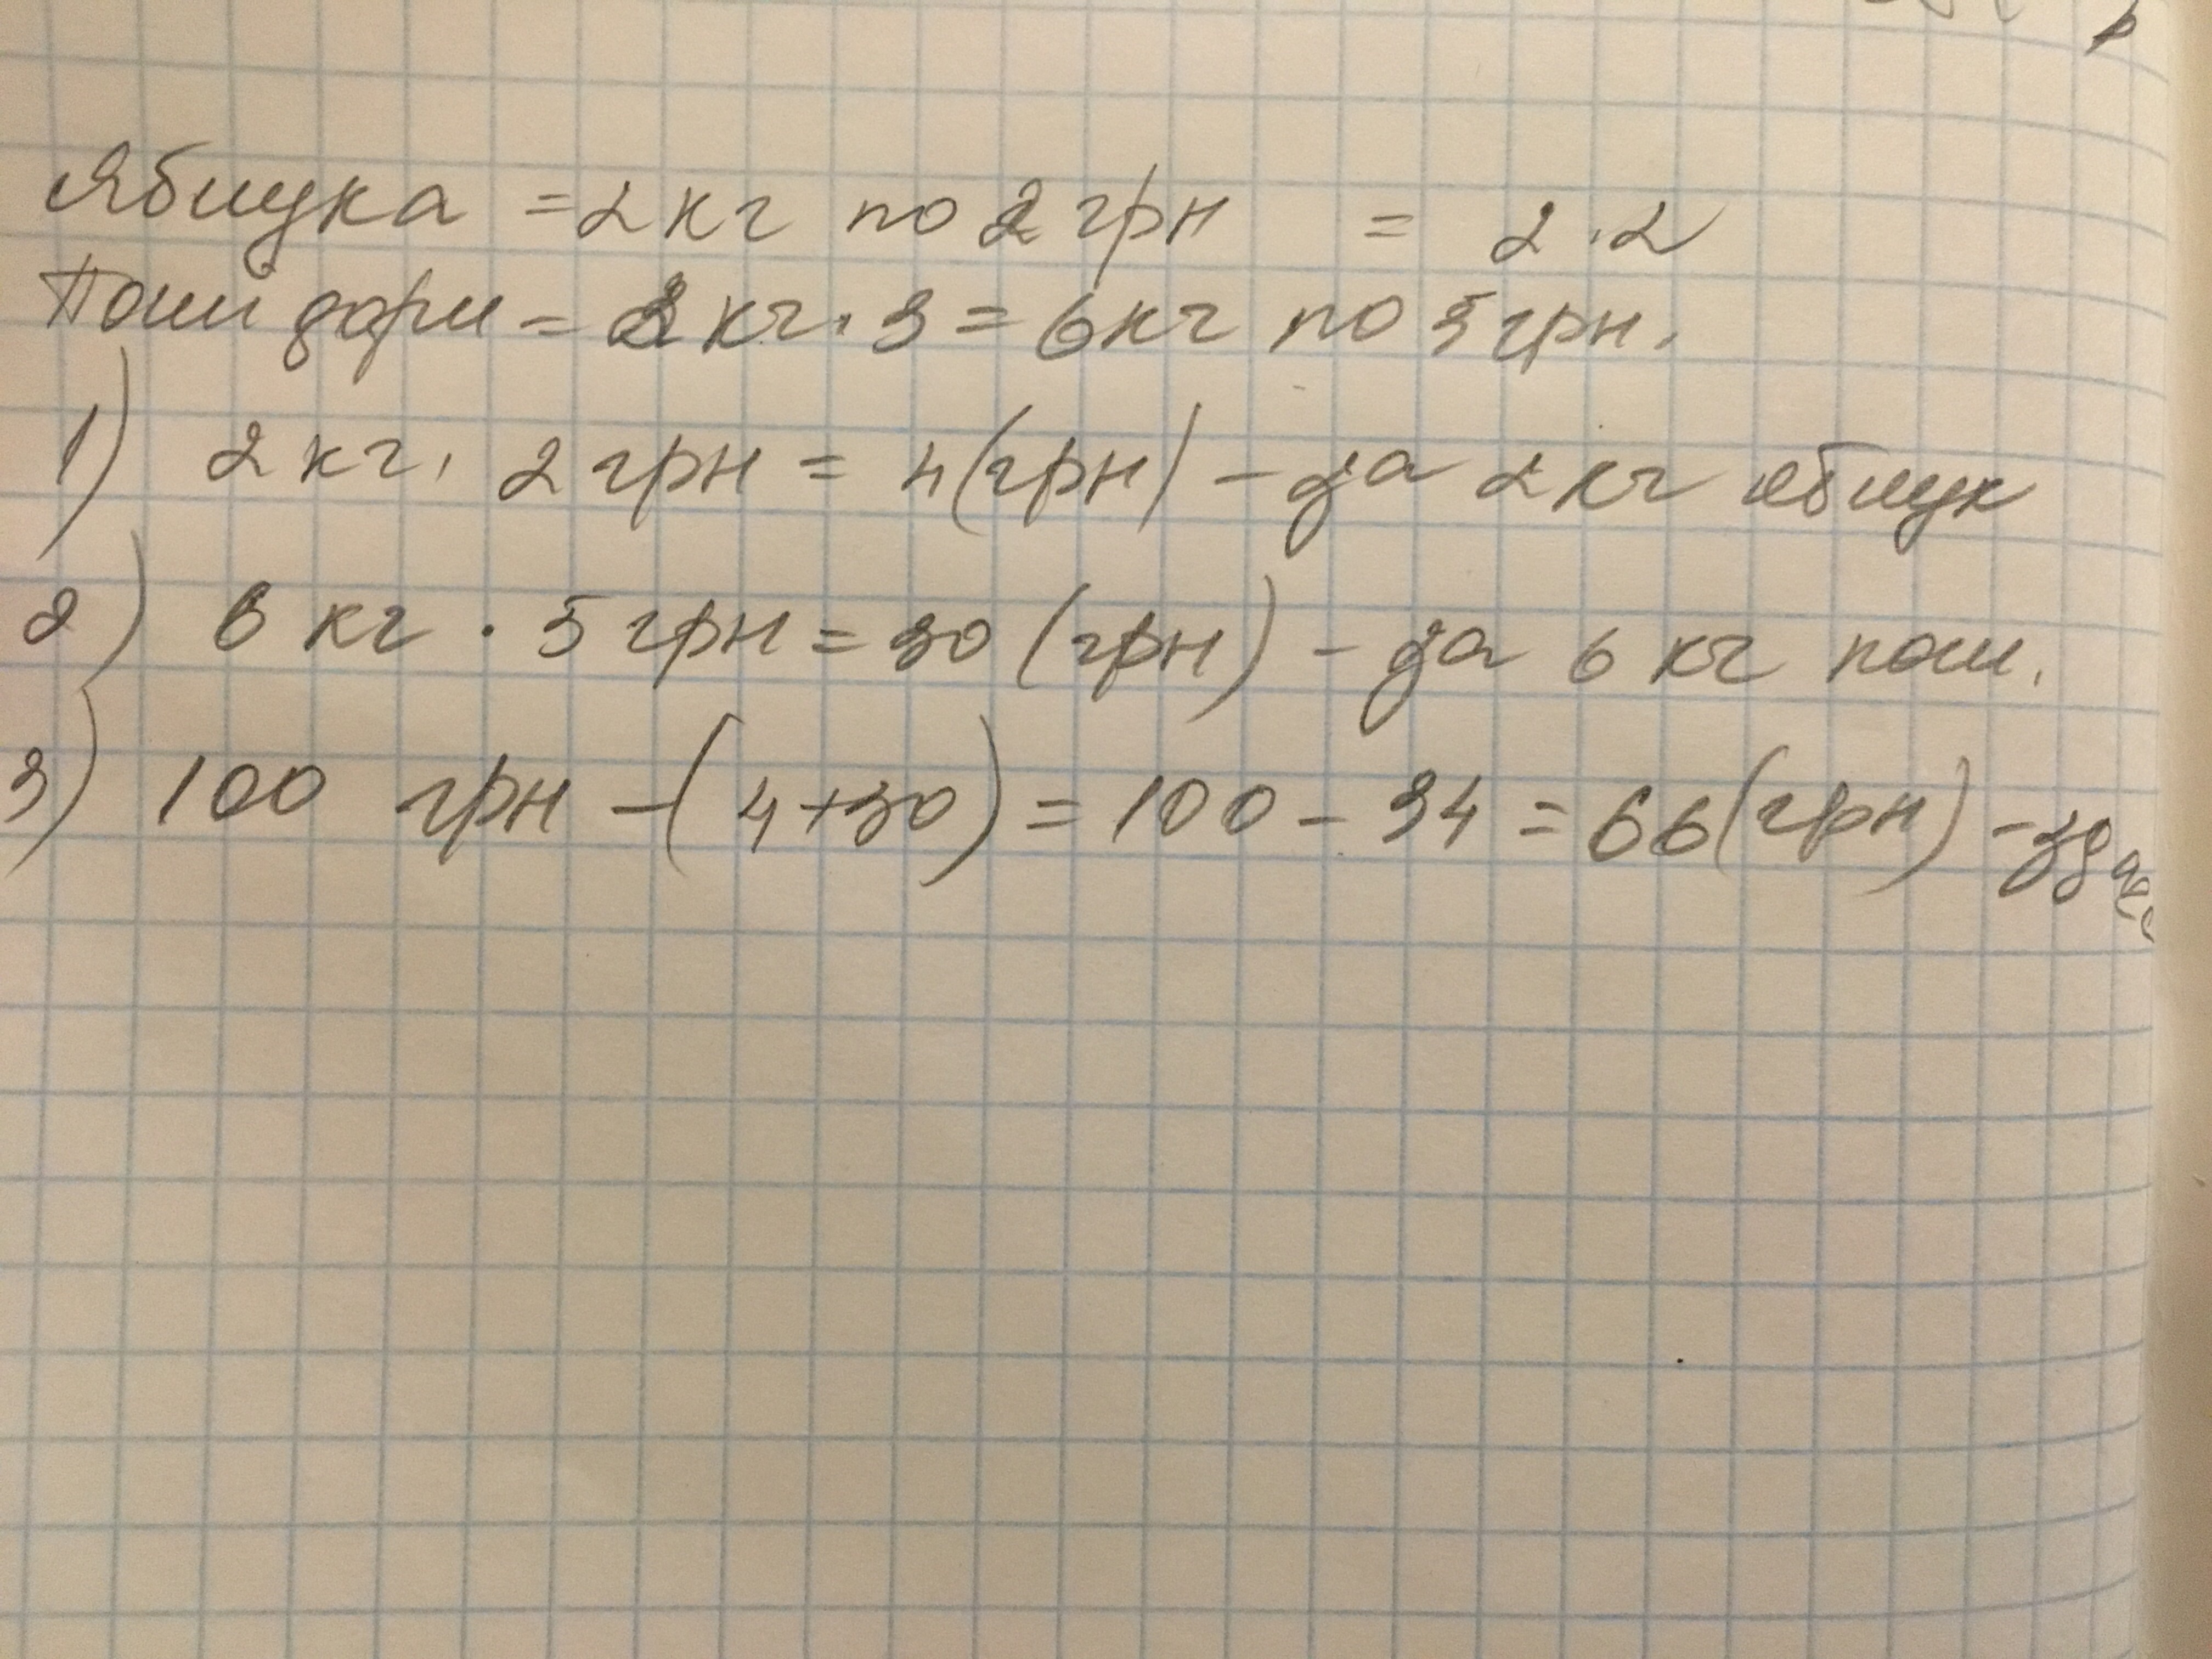 Яблука = 2 кг по 2 грн = 2 · 2
Помідори = 2 кг · 3 = 6 кг по 5 грн.
1) 2 кг · 2 грн = 4 (грн) - за 2 кг яблук
2) 6 кг · 5 грн = 30 (грн) - за 6 кг пом.
3) 100 грн - (4 + 30) = 100 - 34 = 66 (грн) -